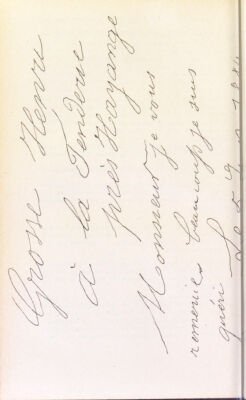 Grosse Henri
à la Tenderie
près Hayange
Monsieur je vous
remerie beaucoup je suis
guéri